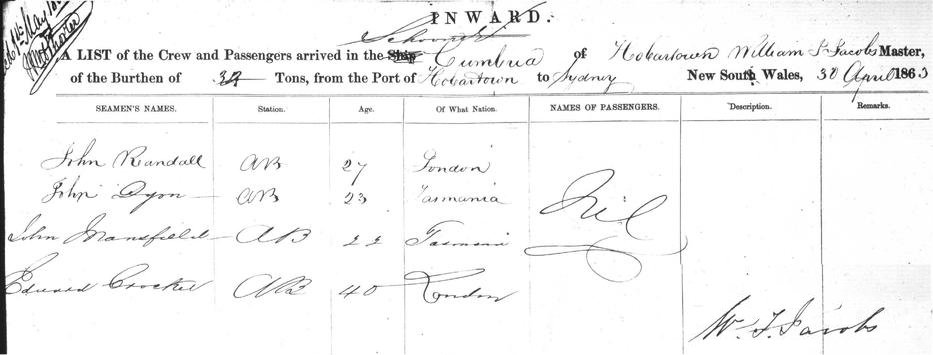 INWARD.
A LIST of the Crew and Passengers arrived in the Ship Schooner Cumbria of Hobartown William F Jacobs Master,
of the Burthen of Tons, from the Port of Hobartown to Sydney New South Wales, 30 April 1863
SEAMEN'S NAMES. Station. Age. Of What Nation. NAMES OF PASSENGERS. Description. Remarks.
John Randall AB 27 London
John Dyon AB 23 Tasmania
Nil
John Mansfield AB 22 Tasmania
Edward Crocket AB 40 London
Wm F. Jacobs